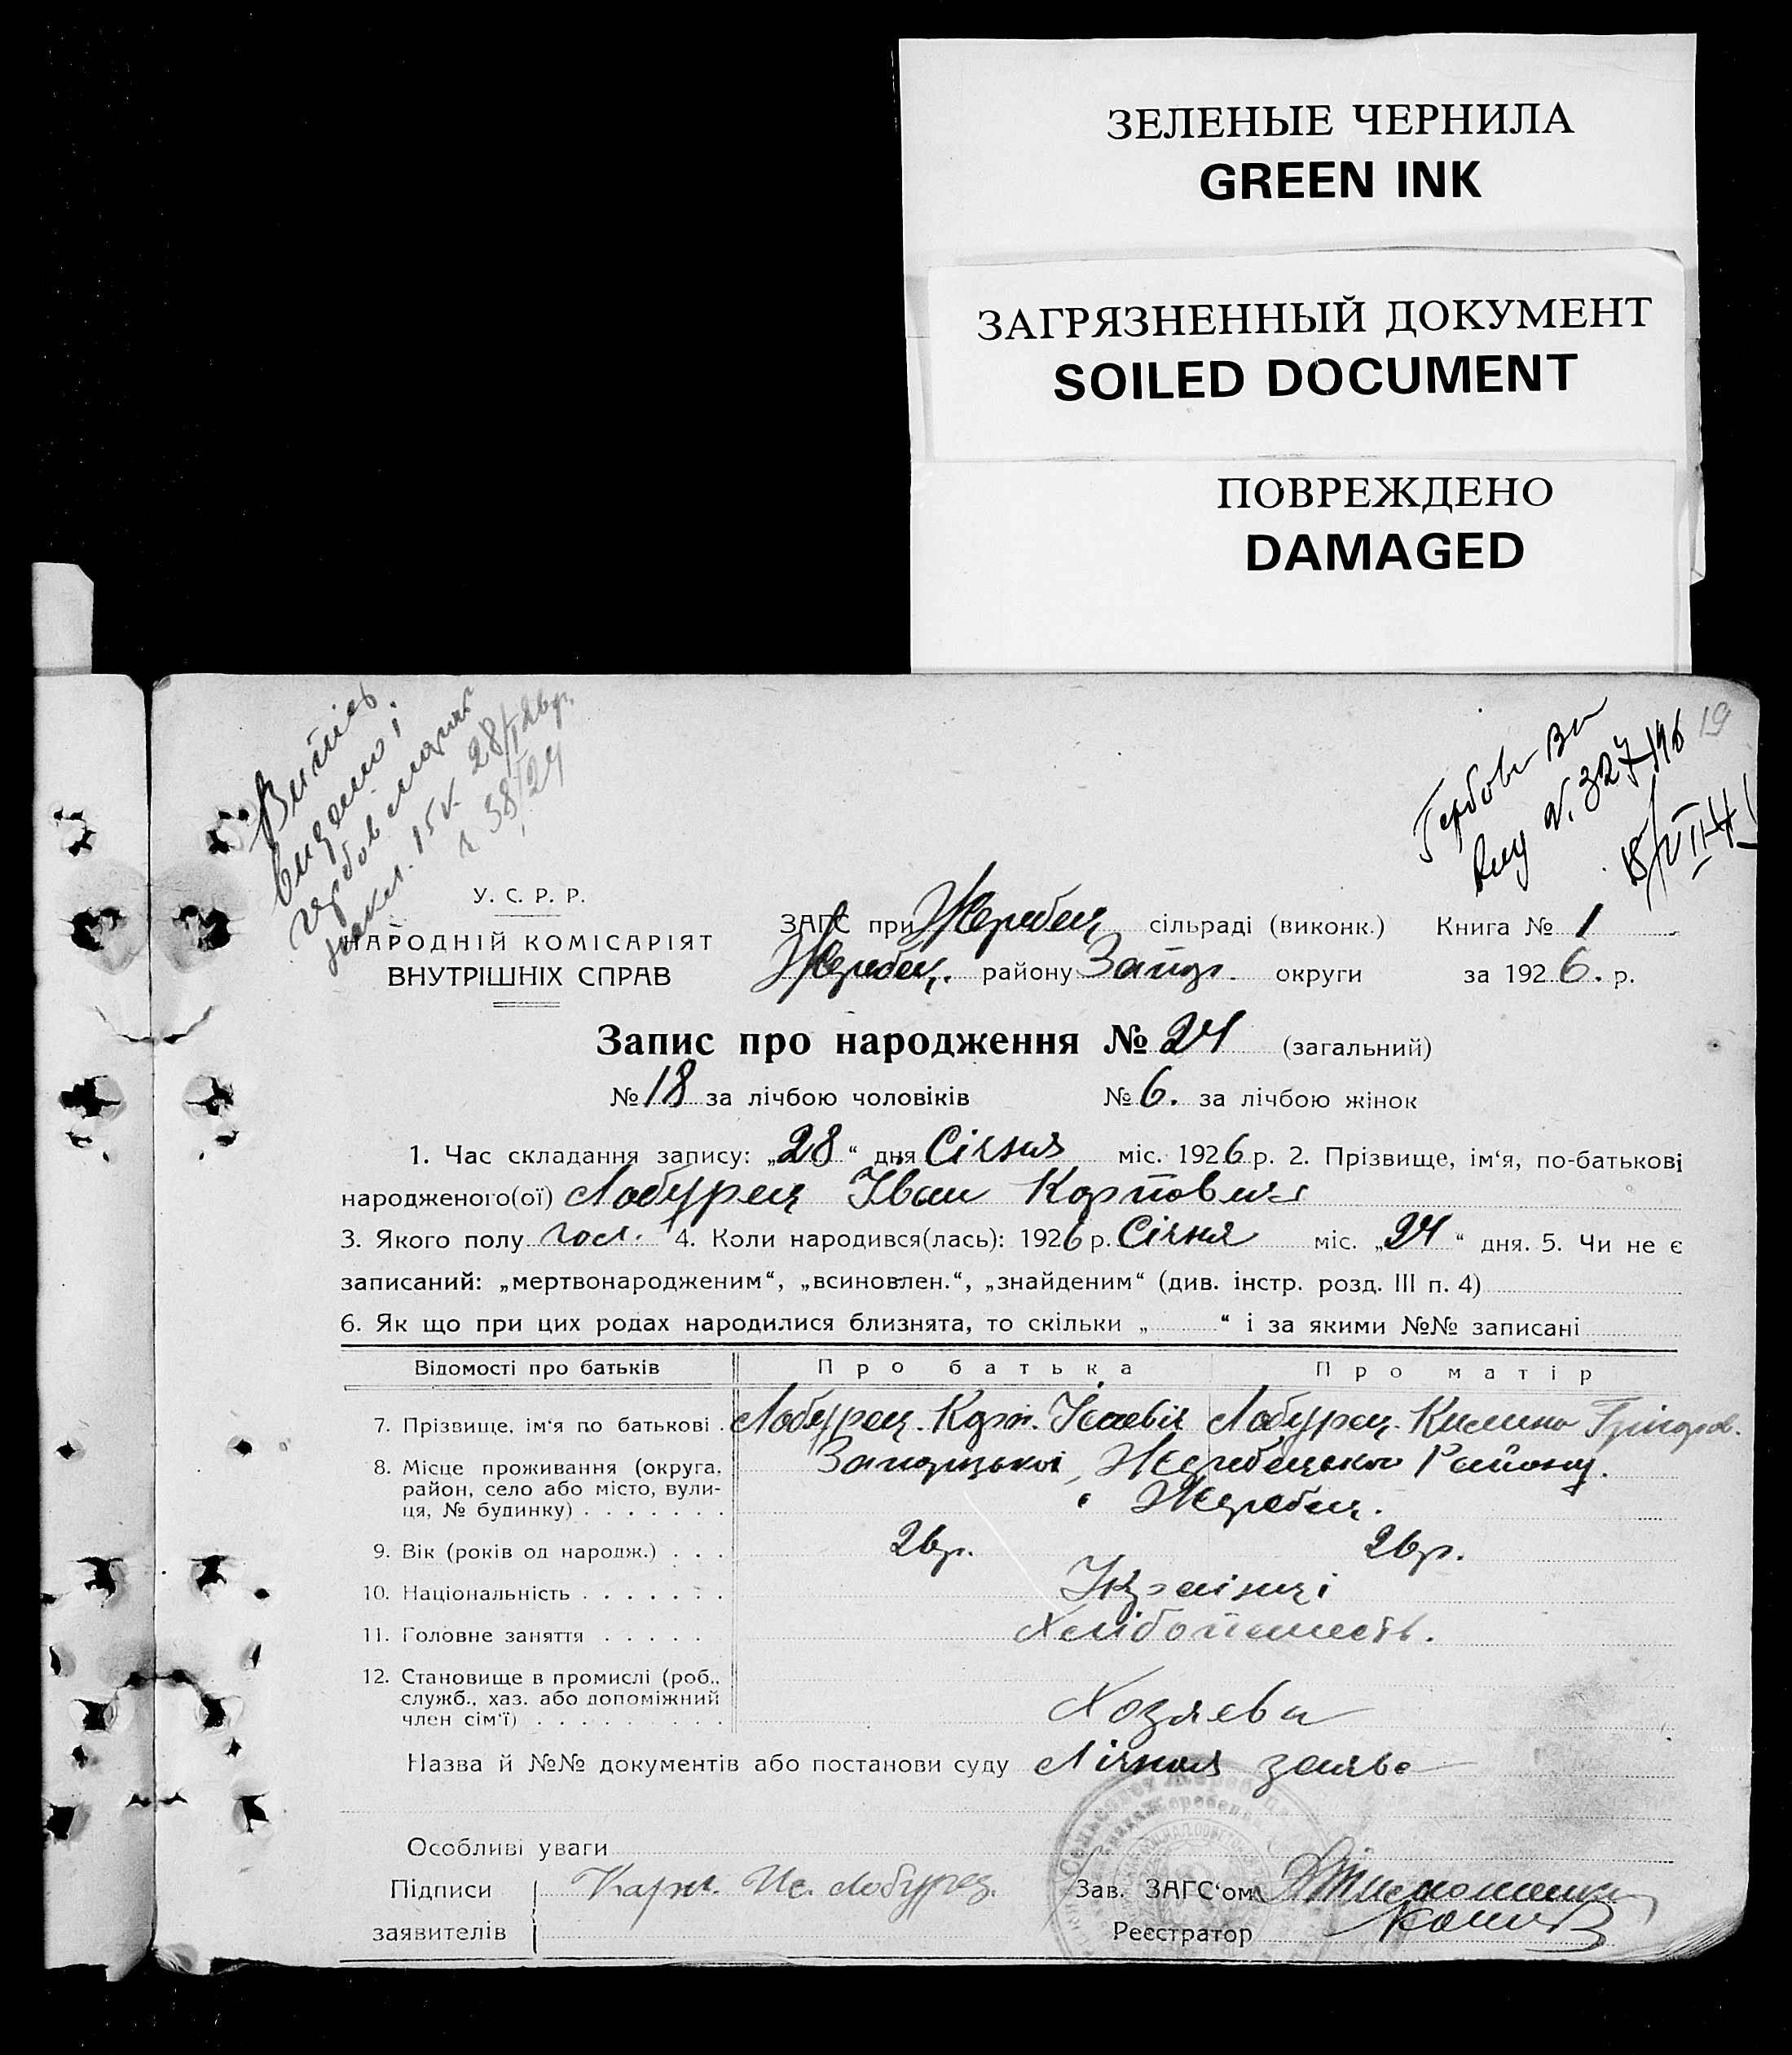 ЗЕЛЕНЫЕ ЧЕРНИЛА
GREEN INK
ЗАГРЯЗНЕННЫЙ ДОКУМЕНТ
SOILED DOCUMENT
ПОВРЕЖДЕНО
DAMAGED
19
Випись
видано і
гербов
15 к. 28/I 26р.
Гербов
№ 327
У. С. Р. Р.
НАРОДНІЙ КОМІСАРІЯТ
ВНУТРІШНІХ СПРАВ
ЗАГС при Жеребец сільраді (виконк.) Книга № 1
Жеребец. району Запор. округи за 1926. р.
Запис про народження № 24 (загальний)
№ 18 за лічбою чоловіків № 6. за лічбою жінок
1. Час складання запису: „28“ дня Січня міс. 1926 р. 2. Прізвище, ім‘я, по-батькові
народженого(ої) Лобурец Іван Карпович
3. Якого полу чол. 4. Коли народився(лась): 1926 р. Січня міс. „24“ дня. 5. Чи не є
записаний: „мертвонародженим“, „всиновлен.“, „знайденим“ (див. інстр. розд. III п. 4)
6. Як що при цих родах народилися близнята, то скільки „ “ і за якими №№ записані
Відомості про батьків Про батька Про матір
7. Прізвище, ім‘я по батькові . Лобурец. Карп. Ісаевіч Лобурец. Килина Грігоров.
8. Місце проживання (округа, Запорізькоі, Жеребецькои Району.
район, село або місто, вули-
ця, № будинку) . . . . . . . с Жеребец.
9. Вік (років од народж.) . . . 26р. 26р.
10. Національність . . . . . . . Україньці
11. Головне заняття . . . . . Хлібопашест.
12. Становище в промислі (роб.,
служб., хаз. або допоміжний
член сім‘ї) . . . . . . . . . Хозяева
Назва й №№ документів або постанови суду Лічная заява
Особливі уваги
Підписи Карп. Ис. Лобурец. Зав. ЗАГС‘ом
заявителів Реєстратор